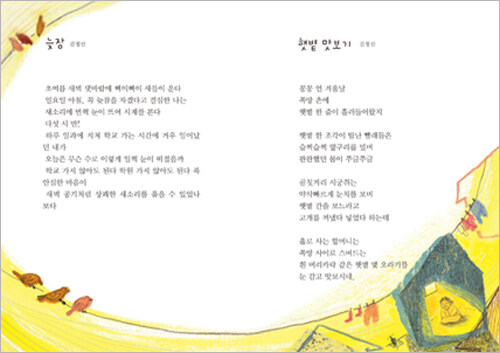 늦잠 김정신
초여름 새벽 댓바람에 삐이삐이 새들이 운다
일요일 아침, 꼭 늦잠을 자겠다고 결심한 나는
새소리에 번쩍 눈이 뜨여 시계를 본다
다섯 시 반!
하루 일과에 지쳐 학교 가는 시간에 겨우 일어났
던 내가
오늘은 무슨 수로 이렇게 일찍 눈이 떠졌을까
학교 가지 않아도 된다 학원 가지 않아도 된다 푹
안심한 마음이
새벽 공기처럼 상쾌한 새소리를 들을 수 있었나
보다
햇볕 맛보기 김정신
꽁꽁 언 겨울날
쪽방 촌에
햇볕 한 줌이 흘러들어왔지
햇볕 한 조각이 탐난 빨래들은
슬쩍슬쩍 옆구리를 밀며
빤빤했던 몸이 쭈글쭈글
골칫거리 시궁쥐는
약삭빠르게 눈치를 보며
햇볕 간을 보느라고
고개를 꺼냈다 넣었다 하는데
홀로 사는 할머니는
쪽방 사이로 스며드는
흰 머리카락 같은 햇볕 몇 오라기를
눈 감고 맛보시네.